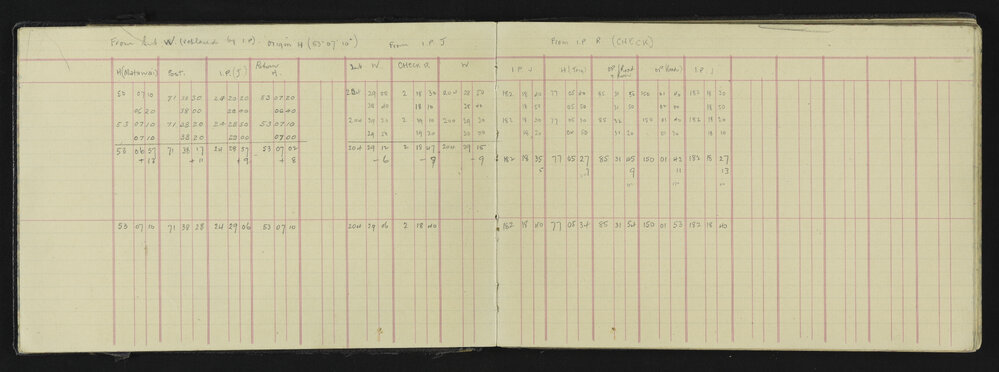 From Sub W (replaced by I.P). origin H (53° 07' 10") From I.P. J From I.P R (CHECK)
H (Matawai) Sst. I.P. (J) Return H. Sub W. CHECK R W I.P. J H (Trig) I.P. J
53 07 10 71 38 30 24 28 50 53 07 20 204 29 00 2 18 30 204 28 50 182 18 40 77 05 40 85 31 50 150 01 40 182 18 30
06 20 38 00 28 40 06 40 28 40 18 10 28 40 18 50 05 50 31 50 18 50
53 07 10 71 38 20 24 28 50 53 07 10 204 29 20 2 19 10 204 29 30 182 18 30 77 05 30 85 32 150 01 40 182 18 20
07 10 38 20 29 00 07 00 29 50 19 20 30 00 18 20 04 50 31 20 01 30 18 10
53 06 57 71 38 17 24 28 57 53 07 02 204 29 12 2 18 47 204 29 15 182 18 35 77 05 27 85 31 45 150 01 42 182 18 27
+ 13 + 11 + 9 + 8 - 6 - 9 - 9 5 7 9 11 13
53 07 10 71 38 28 24 29 06 53 07 10 204 29 06 2 18 40 182 18 40 77 05 34 85 31 54 150 01 53 182 18 40